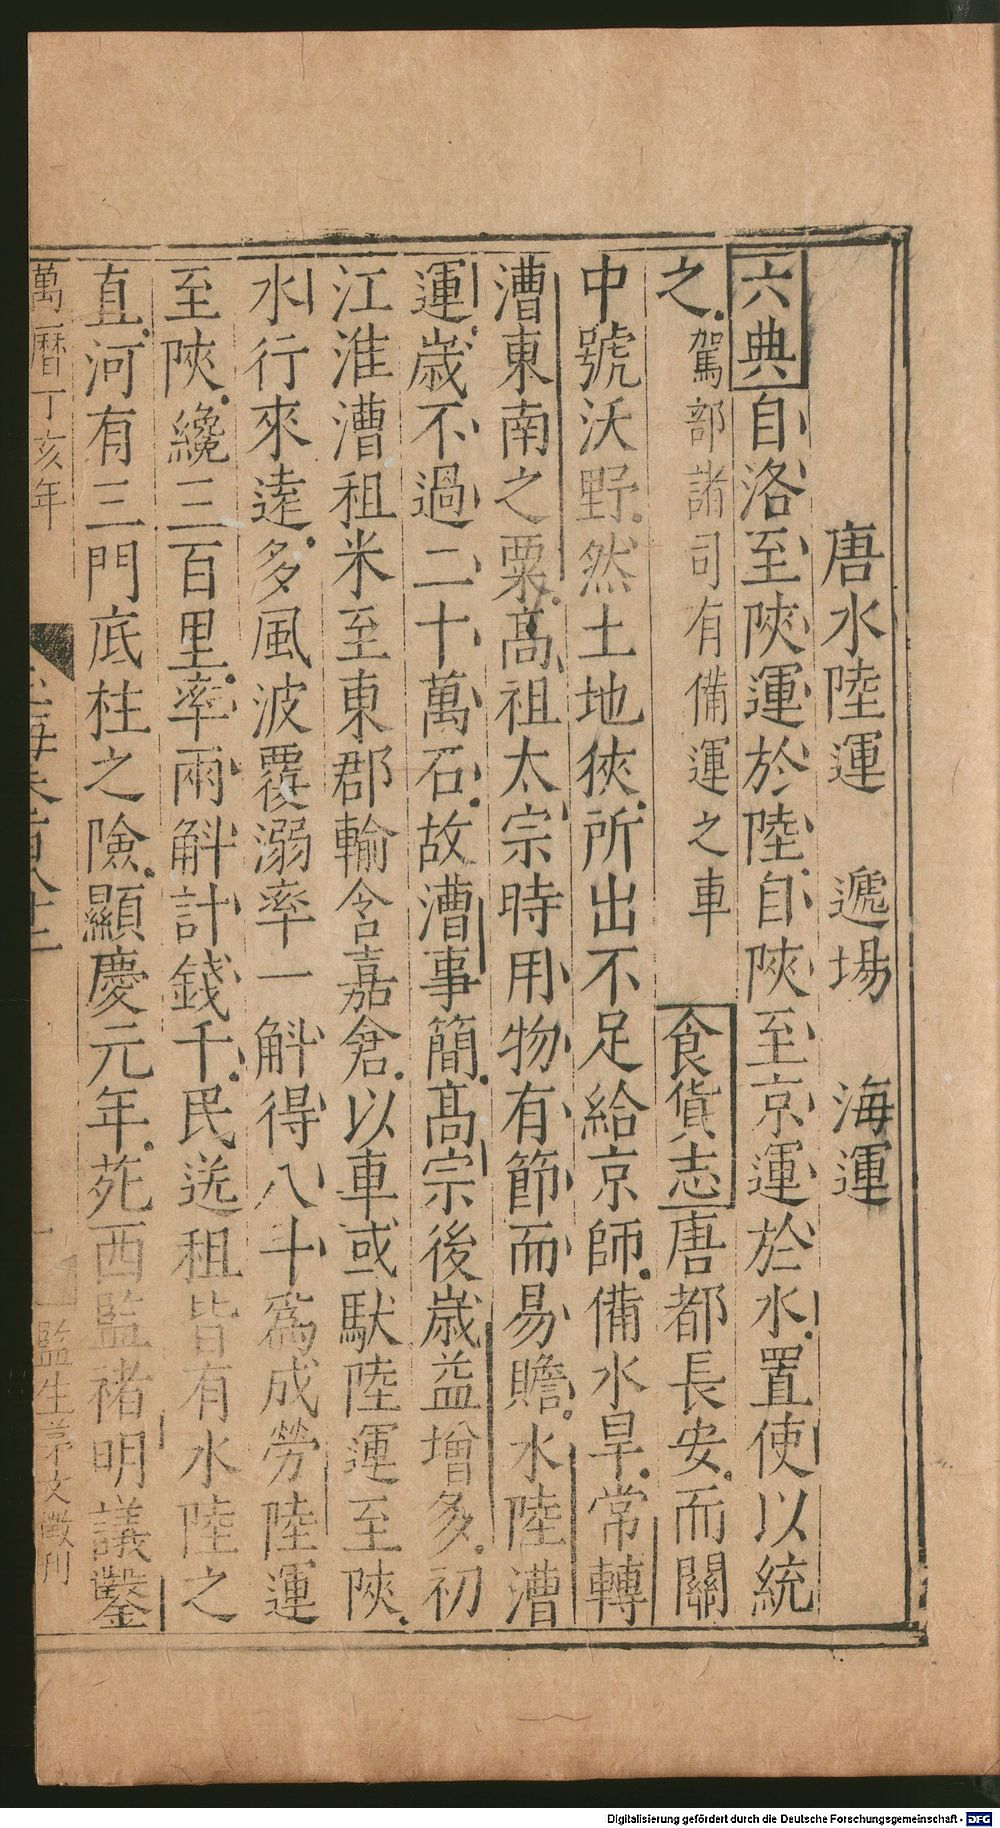 唐水陸運 遞場 海運
六典自洛至陝運於陸自陝至京運於水置使以統
之駕部諸司有備運之車 食貨志唐都長安而關
中號沃野然土地狹所出不足給京師備水旱常轉
漕東南之粟高祖太宗時用物有節而易贍水陸漕
運歲不過二十萬石故漕事簡高宗後歲益增多初
江淮漕租米至東都輸含嘉倉以車或馱陸運至陝
水行來遠多風波覆溺率一斛得八斗爲成勞陸運
至陝纔三百里率兩斛計錢千民送租皆有水陸之
直河有三門底柱之險顯慶元年苑西監褚明議鑿
萬曆丁亥年
監生 文徵刊
Digitalisierung gefördert durch die Deutsche Forschungsgemeinschaft - DFG